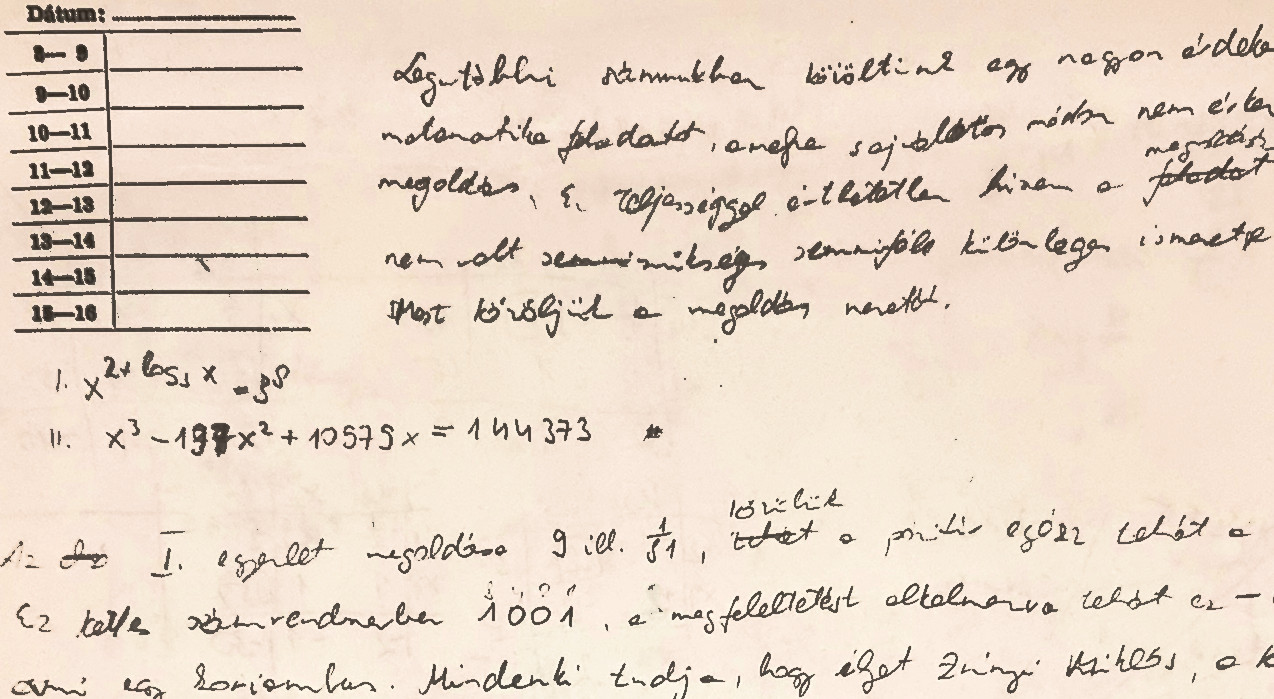 Dátum:
8— 9
9—10
10—11
11—12
12—13
13—14
14—15
15—16
Legutóbbi számunkban közöltünk egy nagyon érdeke
matematika feladatot, amelyre sajnálatos módon nem érke
megoldás
megoldás. Ez teljességgel érthetetlen hiszen a feladat
nem volt szükséges semmiféle különleges ismeretre
Most közöljük a megoldás menetét.
I. x^2+log₃ x = 3^8
II. x³ – 197x² + 10979x = 144373
közülük
Az I. egyenlet megoldása 9 ill. 1/81, tehát a pozitív egész tehát a
Ez kettes számrendszerben 1001, a megfeleltetést alkalmazva tehát ez –
egy koriomban. Mindenki tudja, hogy élget Zrínyi Miklós, a k